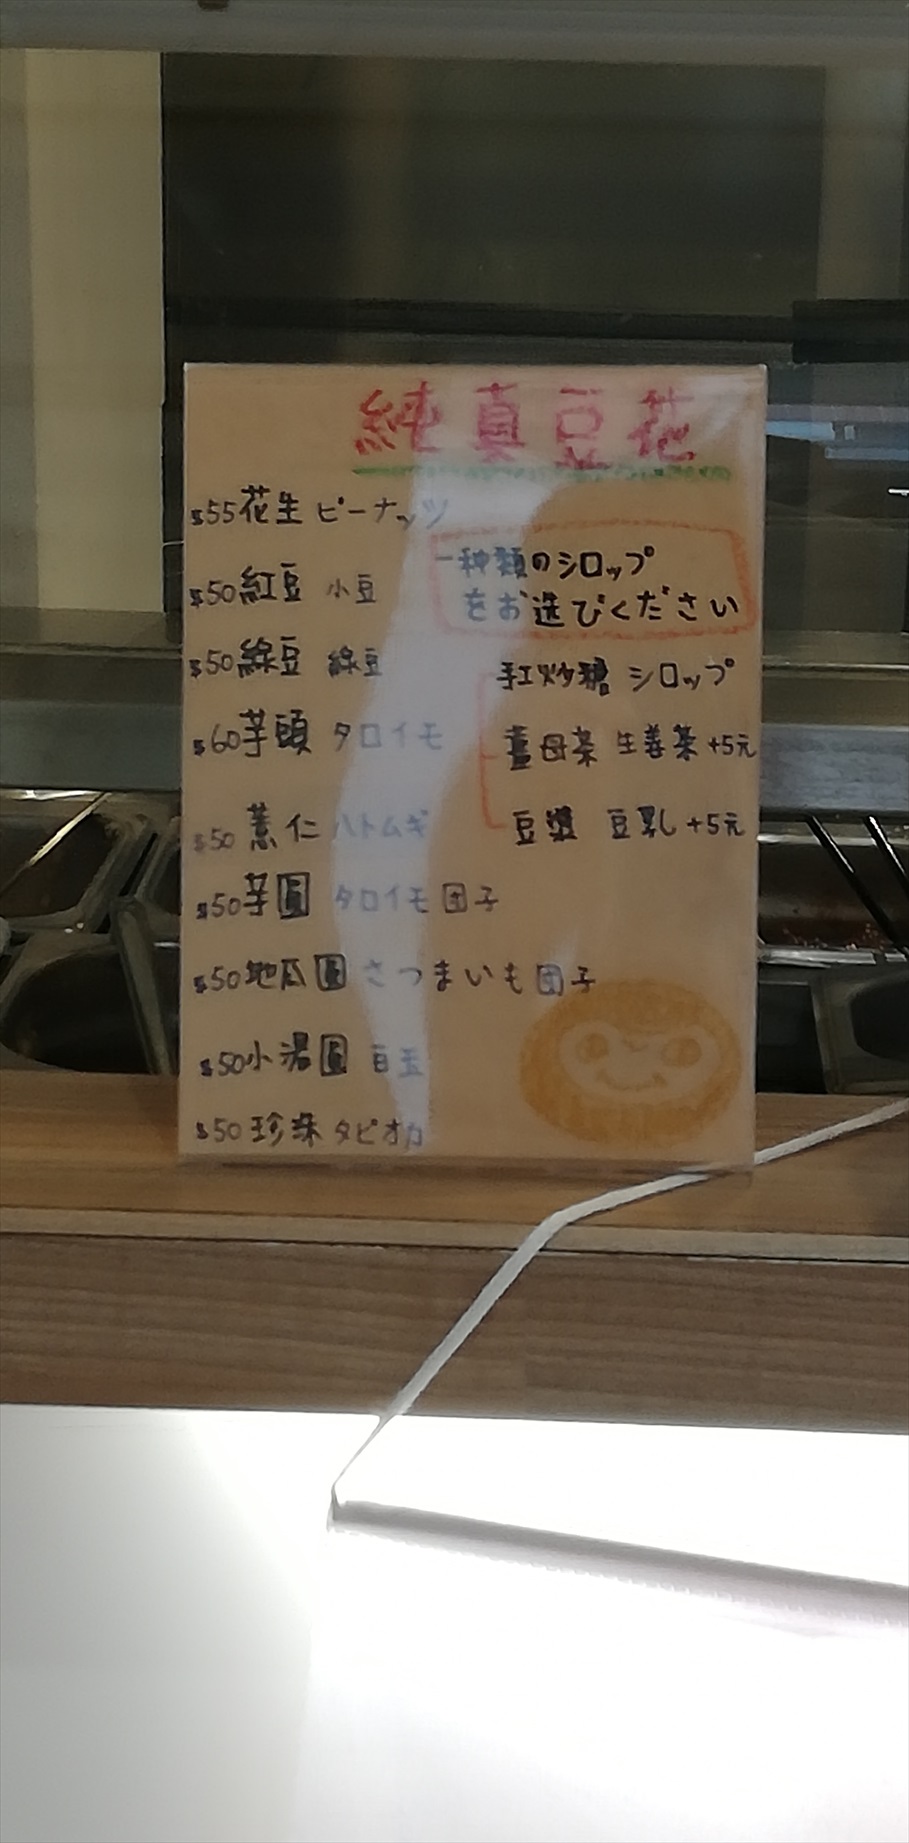 純真豆花
$55花生 ピーナッツ
$50紅豆 小豆
$50綠豆 綠豆
$60芋頭 タロイモ
$50 薏仁 ハトムギ
$50芋圓 タロイモ団子
$50地瓜圓 さつまいも団子
$50小湯圓 白玉
$50 珍珠 タピオカ
一種類のシロップ
をお選びください
手工炒糖 シロップ
薑母茶 生姜茶 +5元
豆漿 豆乳 +5元